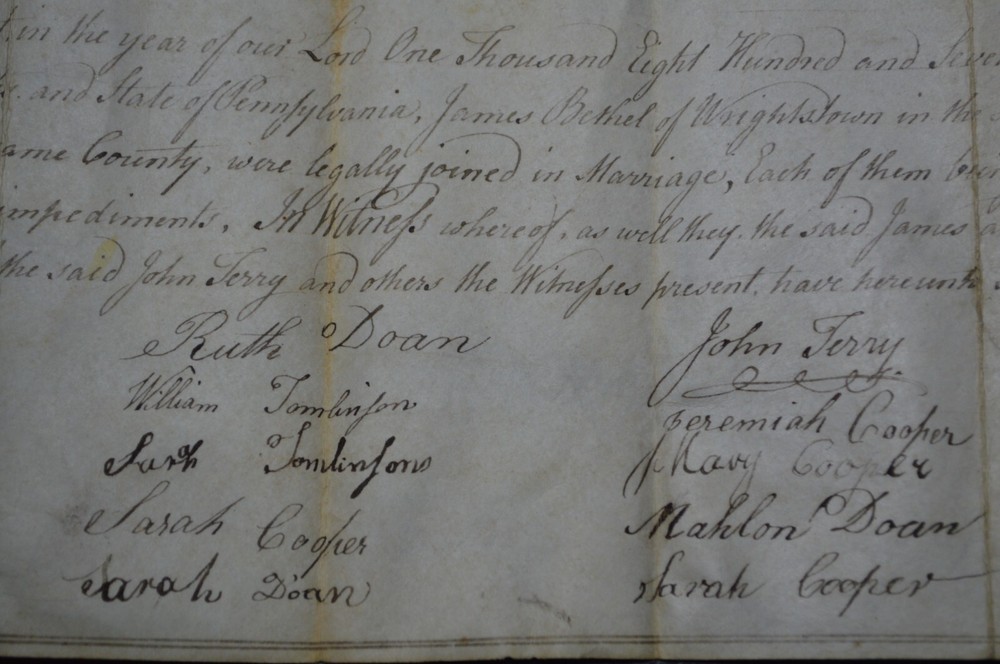 in the year of our Lord One Thousand Eight Hundred and Seven
and State of Pennsylvania, James Bethel of Wrightstown in the
ame County, were legally joined in Marriage, Each of them bein
impediments, In Witness whereof, as well they, the said James a
the said John Terry and others the Witnesses present, have hereunto
Ruth Doan
William Tomlinson
Sarah Tomlinsons
Sarah Cooper
Sarah Doan
John Terry
Jeremiah Cooper
Mary Cooper
Mahlon Doan
Sarah Cooper